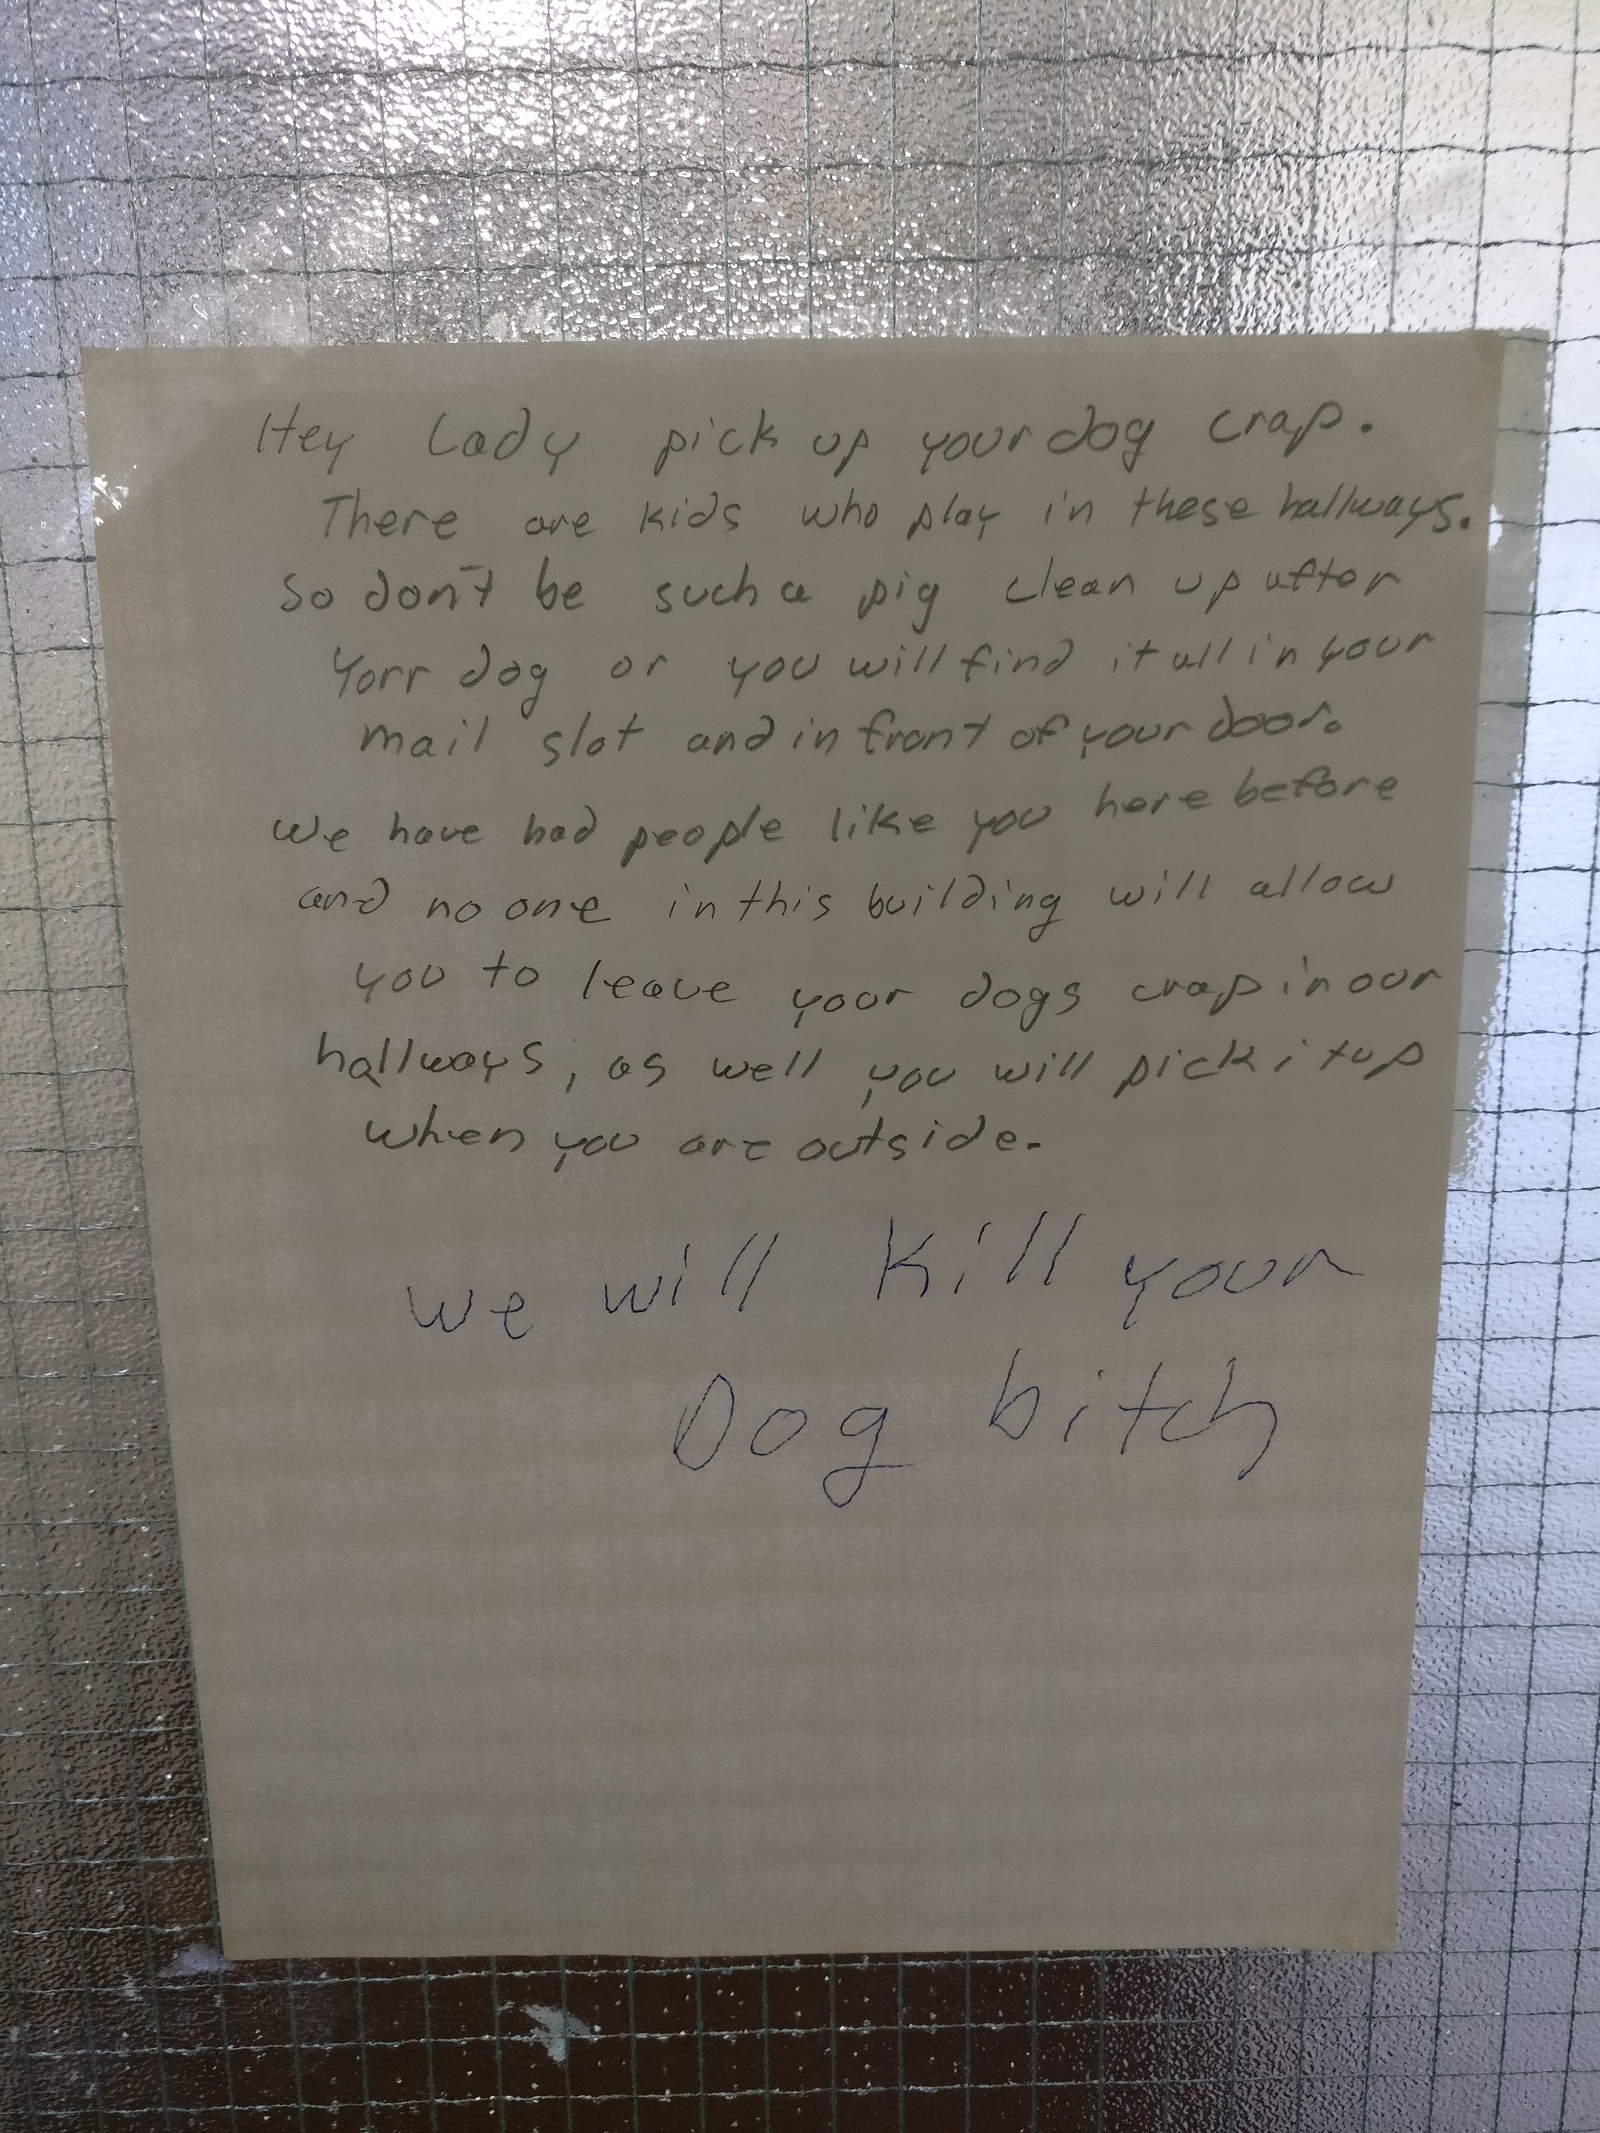 Hey Lady pick up your dog crap.
There are kids who play in these hallways.
So don't be such a pig clean up after
Yorr dog or you will find it all in your
mail slot and in front of your door.
we have had people like you here before
and no one in this building will allow
you to leave your dogs crap in our
hallways, as well you will pick it up
when you are outside.
we will kill your
Dog bitch